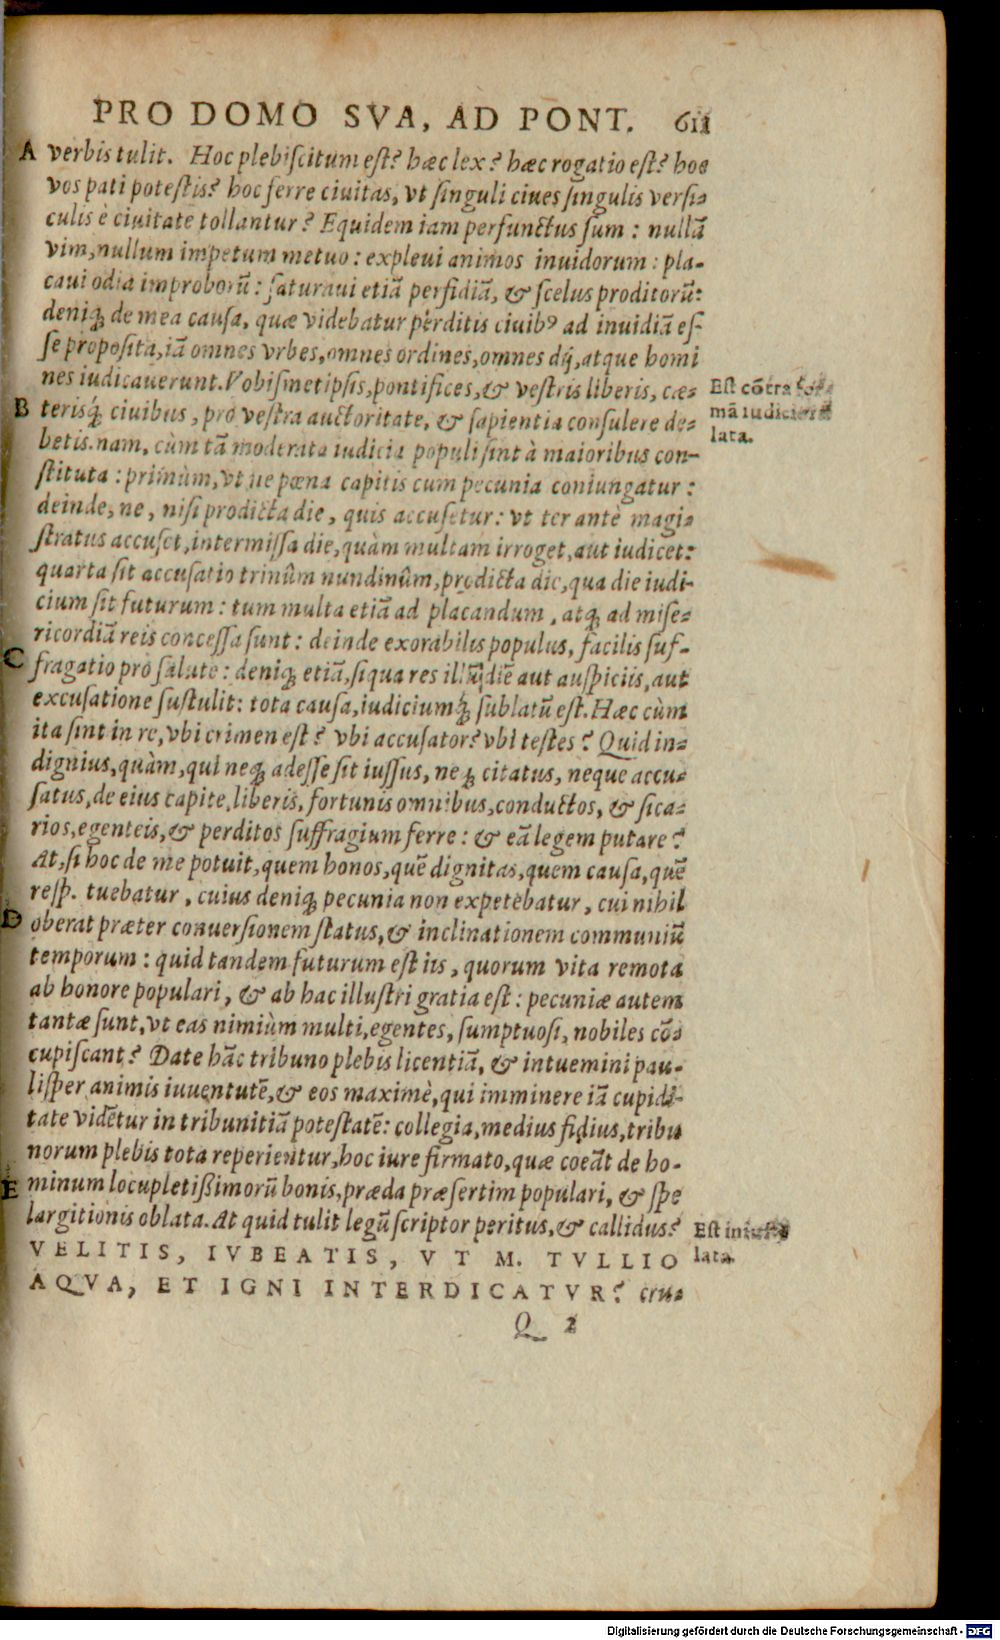 PRO DOMO SVA, AD PONT. 611
A verbis tulit. Hoc plebiſcitum eſt? hæc lex? hæc rogatio eſt? hoc
vos pati poteſtis? hoc ferre ciuitas, vt ſinguli ciues ſingulis verſi-
culis è ciuitate tollantur? Equidem iam perfunctus ſum: nullā
vim, nullum impetum metuo: expleui animos inuidorum: pla-
caui odia improborū: ſaturaui etiā perfidiā, & ſcelus proditorū:
deniq; de mea cauſa, quæ videbatur perditis ciuibꝰ ad inuidiā eſ-
ſe propoſita, iā omnes vrbes, omnes ordines, omnes dij, atque homi
nes iudicauerunt. Vobiſmetipſis, pontifices, & veſtris liberis, cæ-
Eſt cōtra
B terisq́; ciuibus, pro veſtra auctoritate, & ſapientia conſulere de-
mā iudiciorū
betis. nam, cùm tā moderata iudicia populi ſint à maioribus con-
lata.
ſtituta: primùm, vt ne pœna capitis cum pecunia coniungatur:
deinde, ne, niſi prodicta die, quis accuſetur: vt ter antè magi-
ſtratus accuſet, intermiſſa die, quàm multam irroget, aut iudicet:
quarta ſit accuſatio trinûm nundinûm, prodicta die, qua die iudi-
cium ſit futurum: tum multa etiā ad placandum, atq; ad miſe-
ricordiā reis conceſſa ſunt: deinde exorabilis populus, facilis ſuf-
C fragatio pro ſalute: deniq; etiā, ſi qua res illū diē aut auſpiciis, aut
excuſatione ſuſtulit: tota cauſa, iudiciumq́; ſublatū eſt. Hæc cùm
ita ſint in re, vbi crimen eſt? vbi accuſator? vbi teſtes? Quid in-
dignius, quàm, qui neq; adeſſe ſit iuſſus, neq; citatus, neque accu-
ſatus, de eius capite, liberis, fortunis omnibus, conductos, & ſica-
rios, egenteis, & perditos ſuffragium ferre: & eā legem putare?
At, ſi hoc de me potuit, quem honos, quē dignitas, quem cauſa, quē
reſp. tuebatur, cuius deniq; pecunia non expetebatur, cui nihil
D oberat præter conuerſionem ſtatus, & inclinationem communiū
temporum: quid tandem futurum eſt iis, quorum vita remota
ab honore populari, & ab hac illuſtri gratia eſt: pecuniæ autem
tantæ ſunt, vt eas nimiùm multi, egentes, ſumptuoſi, nobiles cō-
cupiſcant? Date hāc tribuno plebis licentiā, & intuemini pau-
liſper animis iuuentutē, & eos maximè, qui imminere iā cupidi-
tate vidētur in tribunitiā poteſtatē: collegia, medius fidius, tribu
norum plebis tota reperientur, hoc iure firmato, quæ coeāt de ho-
E minum locupletißimorū bonis, præda præſertim populari, & ſpe
largitionis oblata. At quid tulit legū ſcriptor peritus, & callidus?
Eſt iniuſtè
VELITIS, IVBEATIS, VT M. TVLLIO
lata.
AQVA, ET IGNI INTERDICATVR? cru-
Q 2
Digitalisierung gefördert durch die Deutsche Forschungsgemeinschaft - DFG